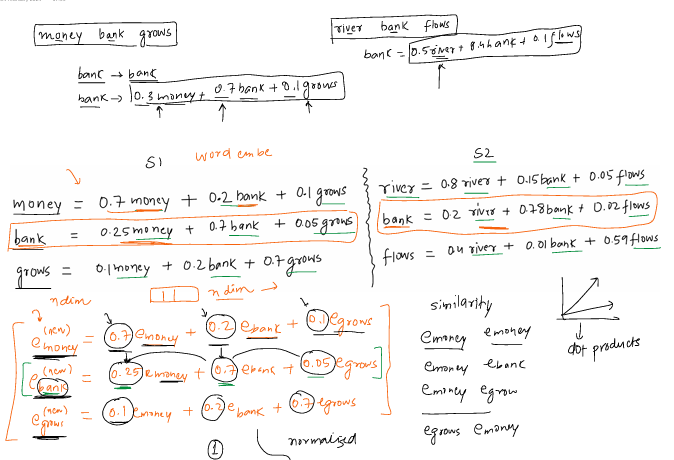 money bank grows
bank → bank
bank → 0.3 money + 0.7 bank + 0.1 grows
river bank flows
bank = 0.5 river + 0.4 bank + 0.1 flows
S1 word embe
money = 0.7 money + 0.2 bank + 0.1 grows
bank = 0.25 money + 0.7 bank + 0.05 grows
grows = 0.1 money + 0.2 bank + 0.7 grows
S2
river = 0.8 river + 0.15 bank + 0.05 flows
bank = 0.2 river + 0.78 bank + 0.02 flows
flows = 0.4 river + 0.01 bank + 0.59 flows
ndim n dim →
e money (new) = 0.7 e money + 0.2 e bank + 0.1 e grows
e bank (new) = 0.25 e money + 0.7 e bank + 0.05 e grows
e grows (new) = 0.1 e money + 0.2 e bank + 0.7 e grows
1 normalized
similarity
e money e money
e money e bank
e money e grow
e grows e money
dot products